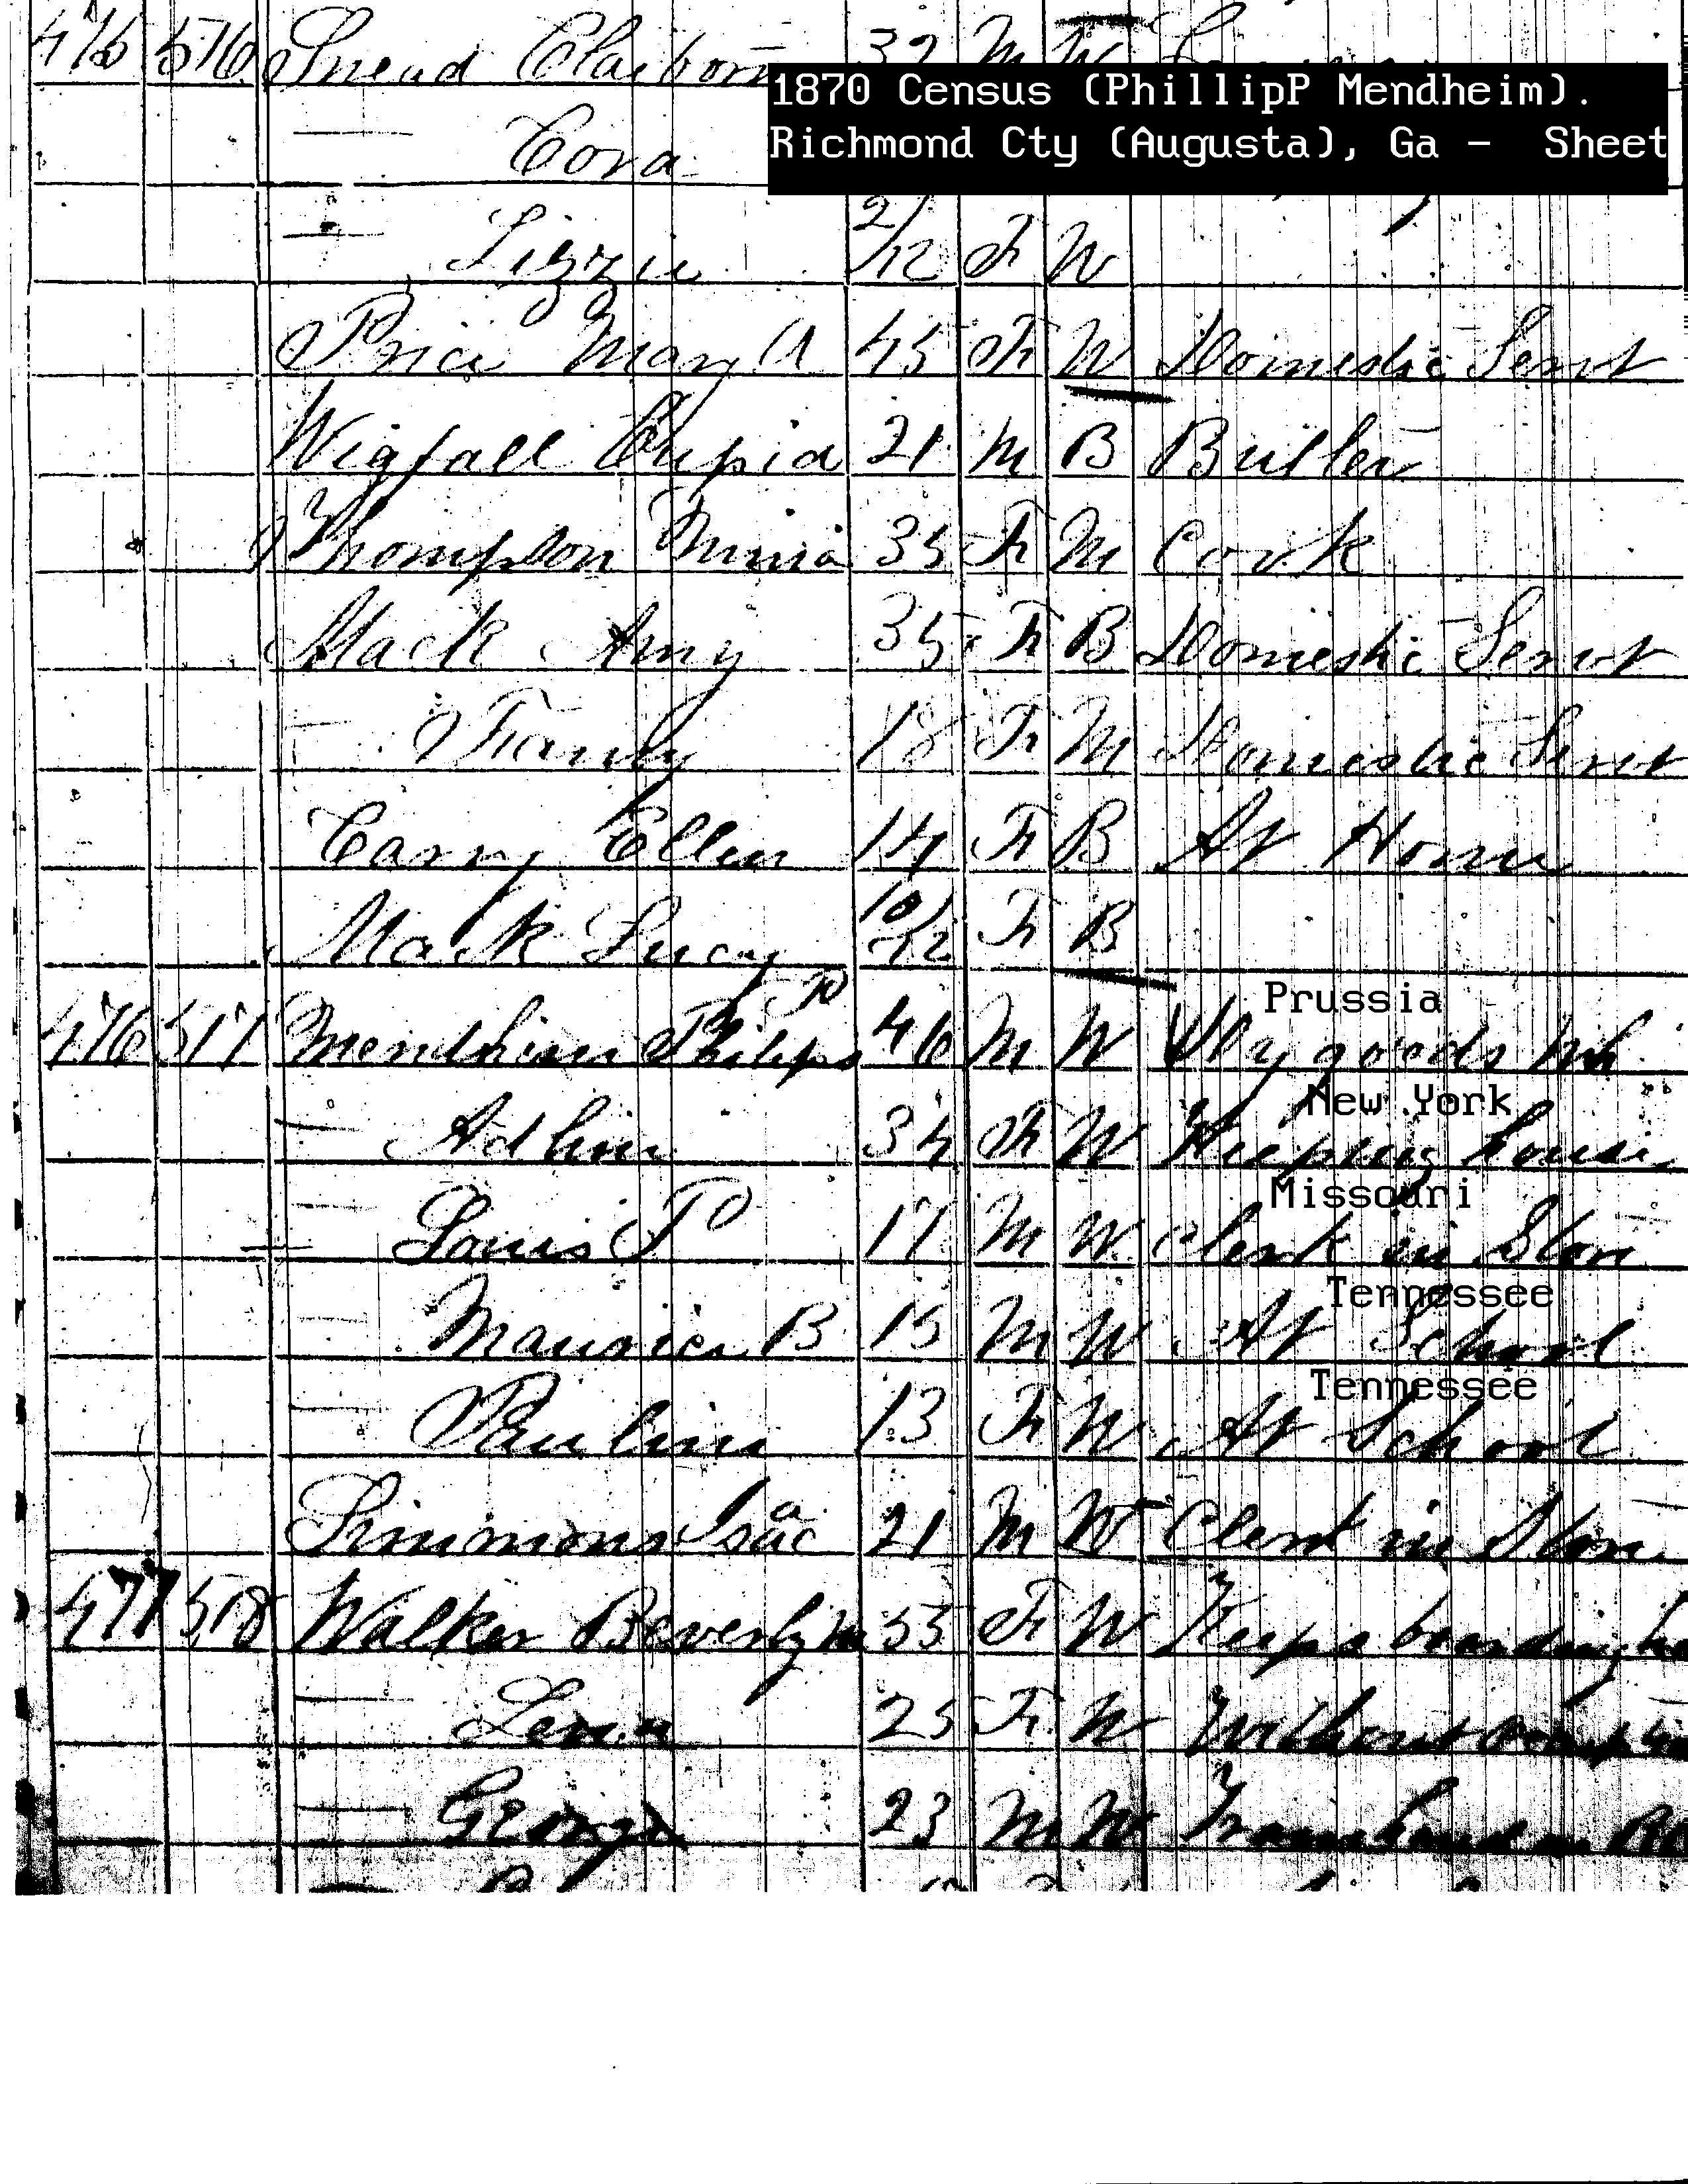 475 516 Snead Claiborn 32 M W
1870 Census (PhillipP Mendheim).
Richmond Cty (Augusta), Ga - Sheet
— Cora
— Lizzie 2/12 F W
Price Mary A 45 F W Domestic Servt
Wigfall Cupid 21 M B Butler
Thompson 35 F M Cook
Mack Amy 35 F B Domestic Servt
— 18 F M Domestic Servt
Carry Ellen 14 F B At Home
Mack Lucy 10/12 F B
Prussia
476 517 Mendhim Philip P 46 M W Dry goods Mh
New York
— Adline 34 F W Keeping house
Missouri
— Louis P 17 M W Clerk in Store
Tennessee
— Maurice B 15 M W At School
Tennessee
— Pauline 13 F W At School
Simmons Isaac 21 M W Clerk in Store
477 518 Walker Beverly M 55 F W Keeps boarding ho
— 25 F W Without
— George 23 M W